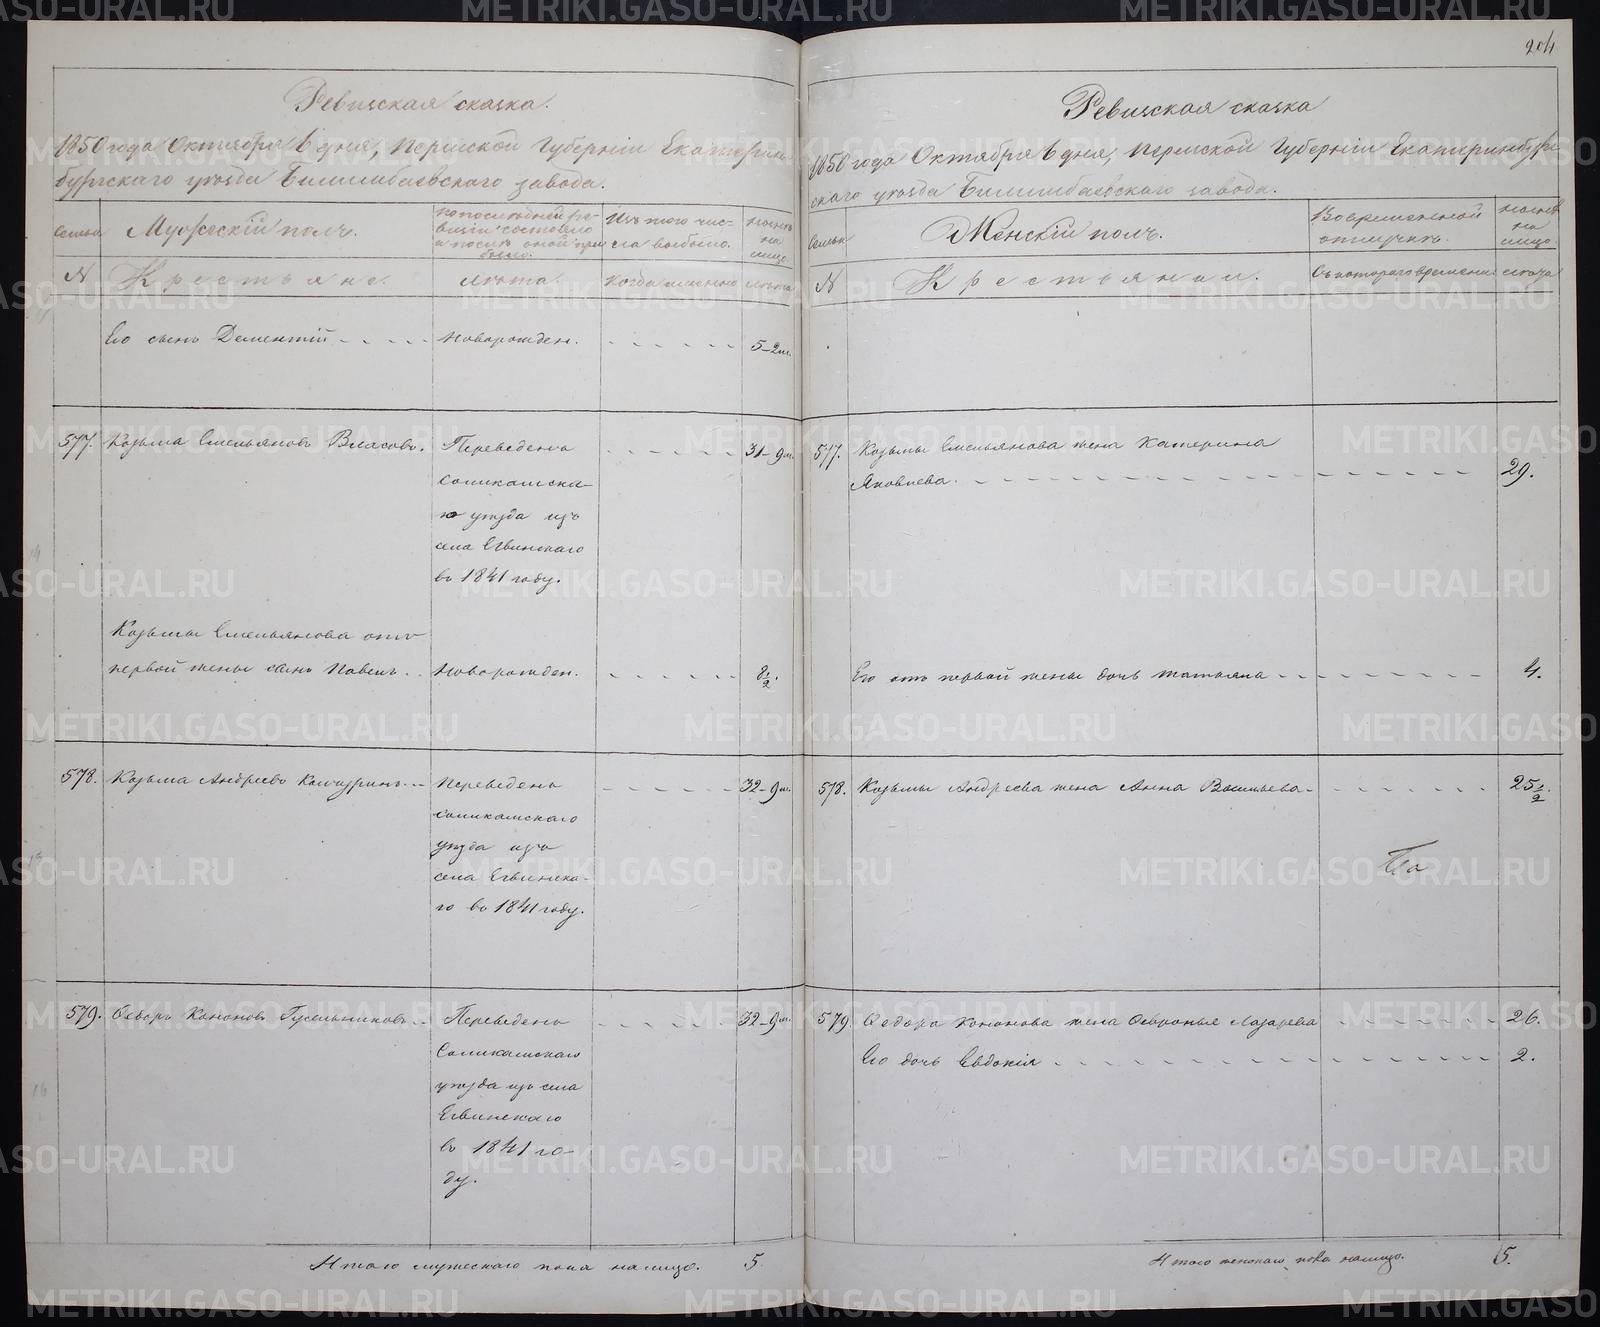 204
Ревизская сказка.
1850 года Октября 6 дня, Пермской Губерніи Екатерин-
бургскаго уѣзда Билимбаевскаго завода.
Семья
Мужескій полъ.
по послѣдней ре-
визіи состояло
и послѣ оной при
было.
Изъ того чис-
ла выбыло.
нынѣ
на
лицо
N
Крестьяне.
лѣта.
когда именно
лѣта
Его сынъ Дементій
новорожден.
5-2м.
577.
Козьма Емельяновъ Власовъ.
Переведенъ
Соликамска-
го уѣзда изъ
села Егвинскаго
въ 1841 году.
31-9м.
Козьмы Емельянова отъ
первой жены сынъ Павелъ
Новорожден.
8 1/2.
578.
Козьма Андреевъ
Переведенъ
Соликамскаго
уѣзда изъ
села Егвинска-
го въ 1841 году.
32-9м.
579.
Ѳедоръ Кононовъ Гусельниковъ
Переведенъ
Соликамскаго
уѣзда изъ села
Егвинскаго
въ 1841 го-
ду.
32-9м.
Итого мужескаго пола налицо. 5.
Ревизская сказка
1850 года Октября 6 дня, Пермской Губерніи Екатеринбург-
скаго уѣзда Билимбаевскаго завода.
Семья
Женскій полъ.
Во временной
отлучкѣ.
нынѣ
на
лицо
N
Крестьянки.
Съ котораго времени
лѣта
577.
Козьмы Емельянова жена Катерина
Яковлева.
29.
Его отъ первой жены дочь Татьяна
4.
578.
Козьмы Андреева жена Анна Васильева
25 1/2.
579.
Ѳедора Кононова жена Ѳевронья Лазарева
26.
Его дочь Евдокія
2.
Итого женскаго пола налицо. 5.
METRIKI.GASO-URAL.RU